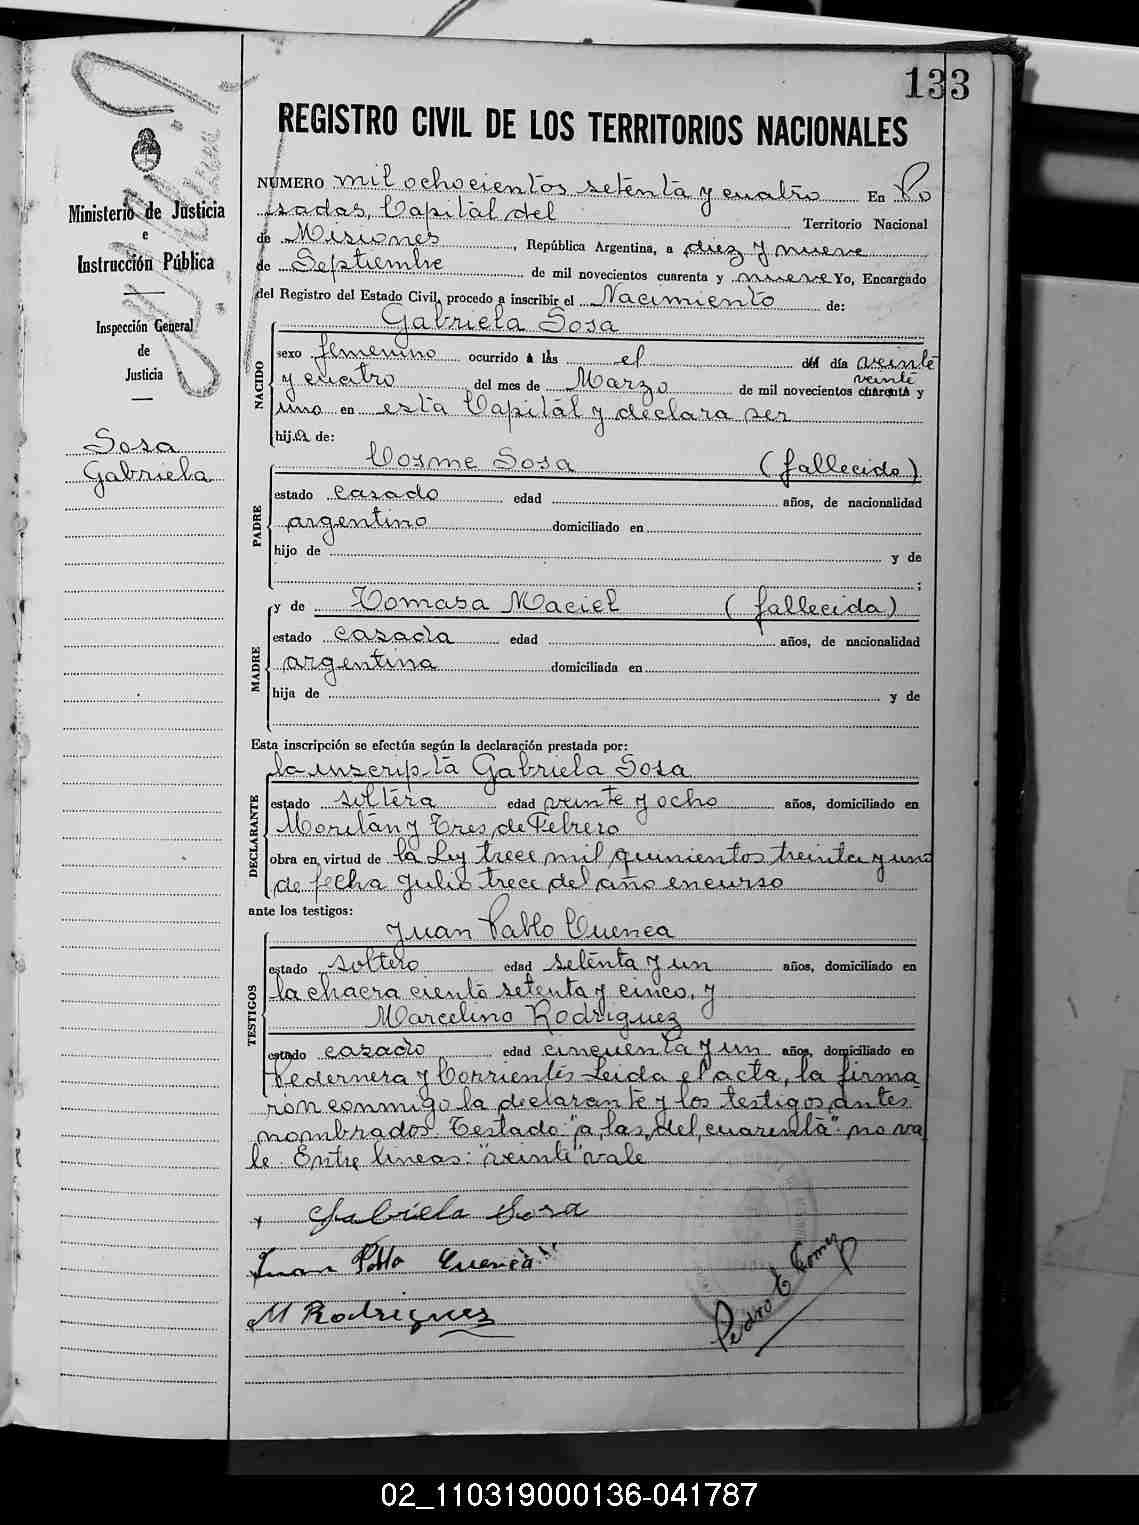 133
REGISTRO CIVIL DE LOS TERRITORIOS NACIONALES
Ministerio de Justicia
e
Instrucción Pública
Inspección General
de
Justicia
Sosa
Gabriela
NÚMERO mil ochocientos setenta y cuatro En Po
sadas, Capital del Territorio Nacional
de Misiones, República Argentina, a diez y nueve
de Septiembre de mil novecientos cuarenta y nueve Yo, Encargado
del Registro del Estado Civil, procedo a inscribir el Nacimiento de:
Gabriela Sosa
NACIDO
sexo femenino ocurrido a las el del día veinte
y cuatro del mes de Marzo de mil novecientos cuarenta y
veinte
uno en esta Capital y declara ser
hija de:
PADRE
Cosme Sosa (fallecido)
estado casado edad años, de nacionalidad
argentino domiciliado en
hijo de y de
;
MADRE
y de Tomasa Maciel (fallecida)
estado casada edad años, de nacionalidad
argentina domiciliada en
hija de y de
Esta inscripción se efectúa según la declaración prestada por:
DECLARANTE
la inscripta Gabriela Sosa
estado soltera edad veinte y ocho años, domiciliado en
y Tres de Febrero
obra en virtud de la Ley trece mil quinientos treinta y uno
de fecha Julio trece del año encurso
ante los testigos:
TESTIGOS
Juan Pablo Cuenca
estado soltero edad setenta y un años, domiciliado en
la chacra ciento setenta y cinco, y
Marcelino Rodriguez
estado casado edad cincuenta y un años, domiciliado en
Pedernera y Corrientes Leida el acta, la firma
ron conmigo la declarante y los testigos antes
nombrados. Testado "a las, del, cuarenta": no va
le. Entre lineas: "veinte" vale
Gabriela Sosa
Juan Pablo Cuenca
M Rodriguez
Pedro E Gomez
02_110319000136-041787